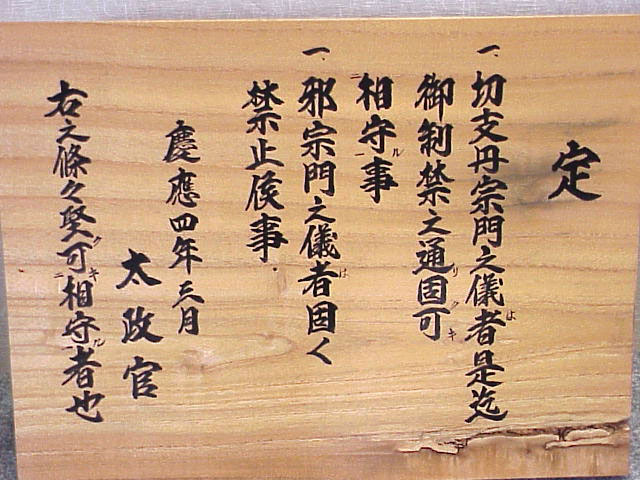 定
一 切支丹宗門之儀者是迄
御制禁之通固可
相守事
一 邪宗門之儀者固く
禁止候事
慶應四年三月
太政官
右之條々堅可相守者也